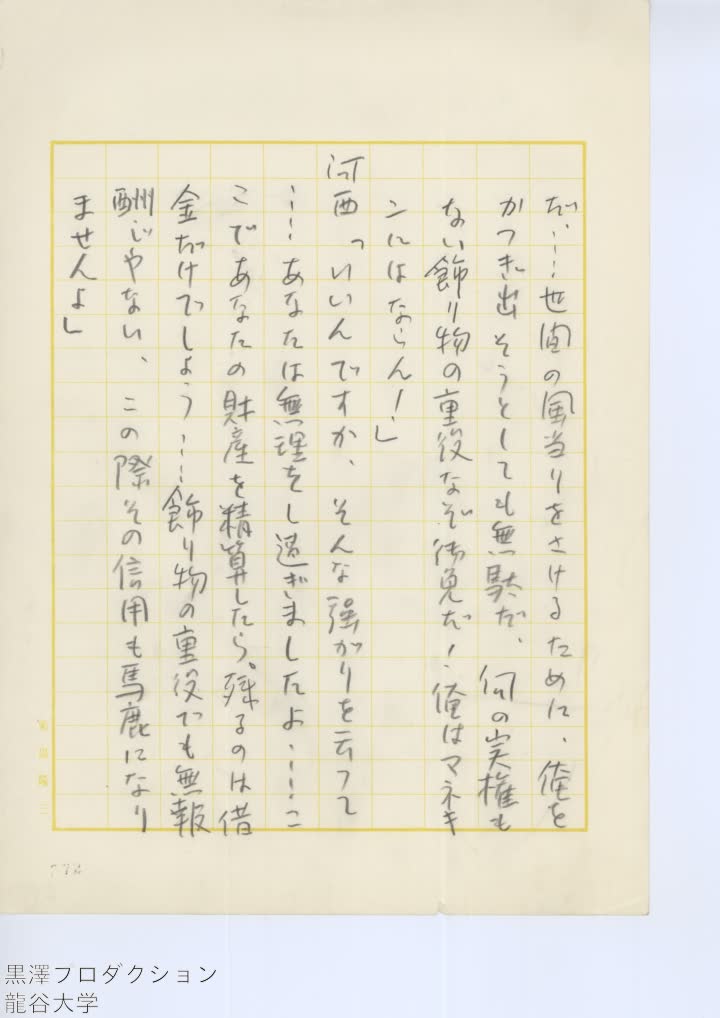 だ……世間の風当りをさけるために、俺を
かつぎ出そうとしても無駄だ、何の実権も
ない飾り物の重役なぞ御免だ！俺はマネキ
ンにはならん！」
河西「いいんですか、そんな強がりを云って
……あなたは無理をし過ぎましたよ……こ
こであなたの財産を精算したら。残るのは借
金だけでしょう……飾り物の重役でも無報
酬じゃない、この際その信用も馬鹿になり
ませんよ」
黒澤プロダクション
龍谷大学